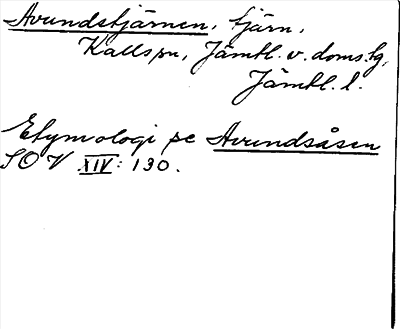 Avundstjärnen, tjärn,
Kallspn, Jämtl. v. doms.tg,
Jämtl. l.
Etymologi se Avundsåsen
SOV XIV: 130.